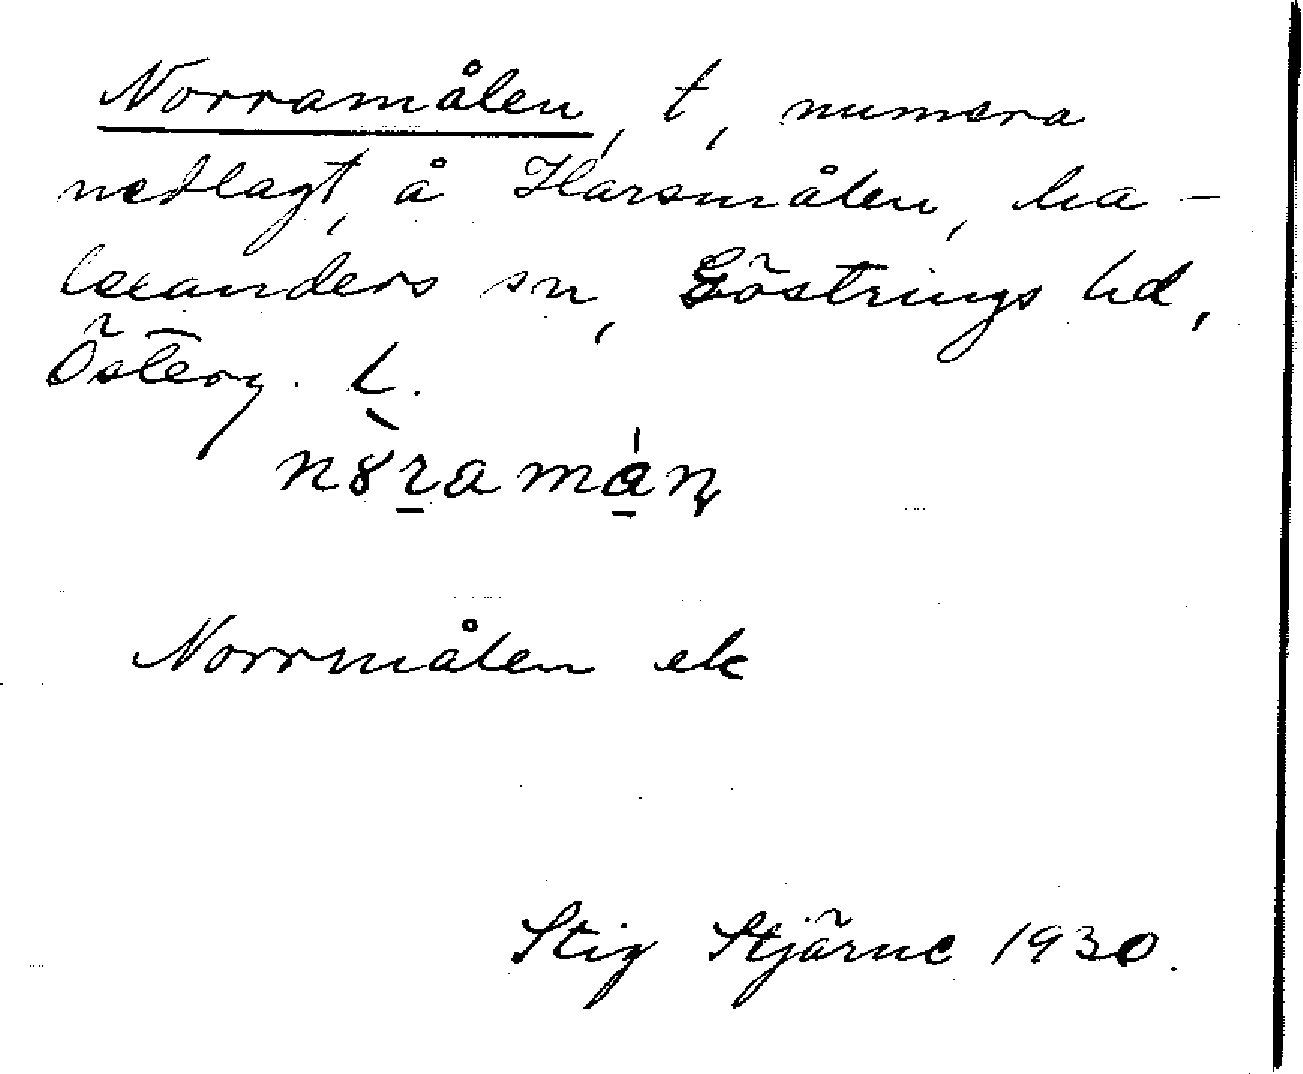 Norramålen, t, numera
nedlagt, å Harsmålen, ha-
lexanders sn, Göstrings hd,
Österg. L.
n8̀ramán
Norrmålen ek
Stig Stjärne 1930.